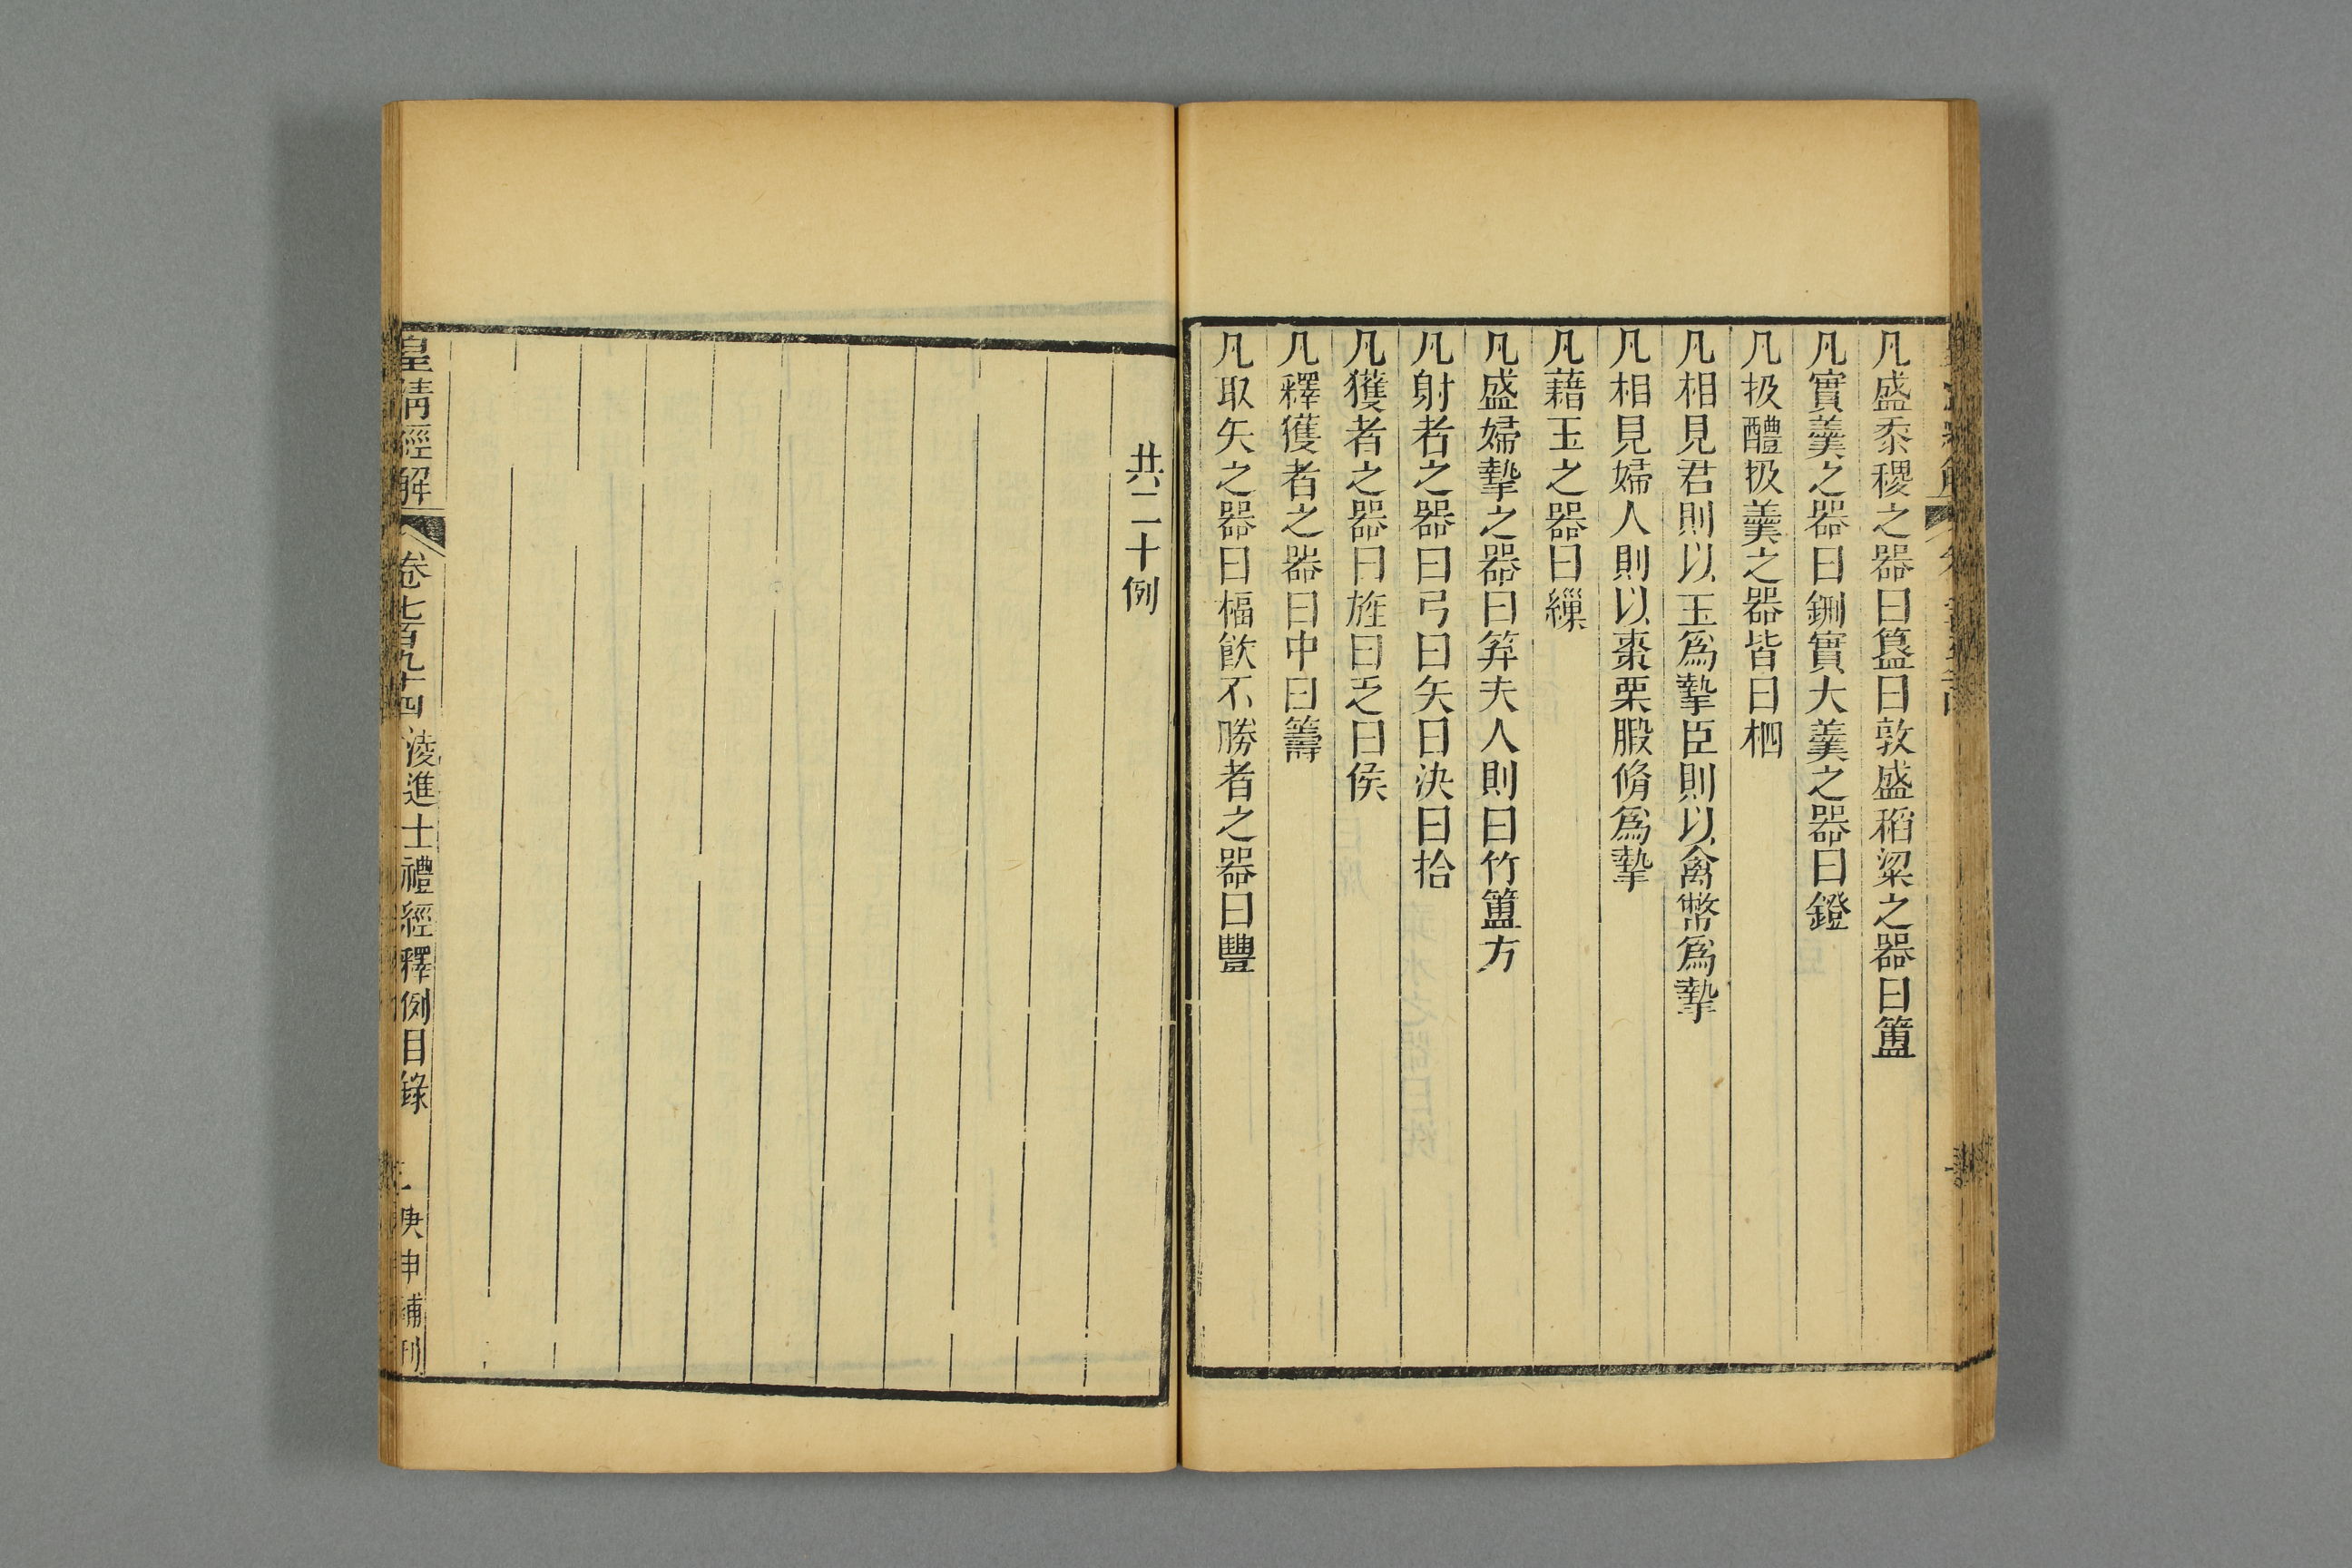 凡盛黍稷之器曰簋曰敦盛稻粱之器曰簠
凡實羹之器曰鉶實大羹之器曰鐙
凡扱醴扱羹之器皆曰柶
凡相見君則以玉爲摯臣則以禽幣爲摯
凡相見婦人則以棗栗腶脩爲摯
凡藉玉之器曰繅
凡盛婦摯之器曰笲夫人則曰竹簠方
凡射者之器曰弓曰矢曰決曰拾
凡獲者之器曰旌曰乏曰侯
凡釋獲者之器曰中曰籌
凡取矢之器曰楅飲不勝者之器曰豐
共二十例
皇清經解 卷七百九十四 淩進士禮經釋例目錄 庚申補刊